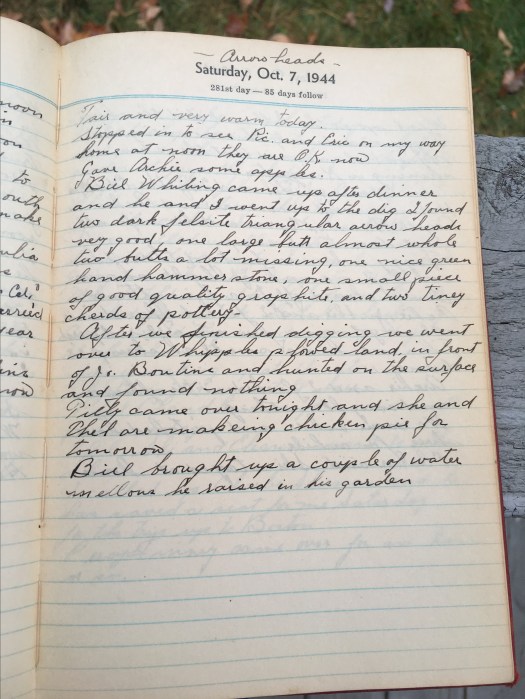 - Arrow heads -
Saturday, Oct. 7, 1944
281st day — 85 days follow
Fair and very warm today.
Stopped in to see Pic. and Eric on my way
home at noon they are O.K. now
Gave Archie some apples.
Bill Whiting came up after dinner
and he and I went up to the dig I found
two dark felsite triangular arrow heads
very good, one large butt almost whole
two butts a lot missing, one nice green
hand hammerstone, one small piece
of good quality graphite, and two tiney
cherds of pottery.
After we finished digging we went
over to Whipples plowed land, in front
of Js. and hunted on the surface
and found nothing
came over tonight and she and
Thel are makeing chicken pie for
tomorrow
Bill brought up a couple of water
mellons he raised in his garden
noon
in
on
to
outh
make
s
Cel,"
year
now